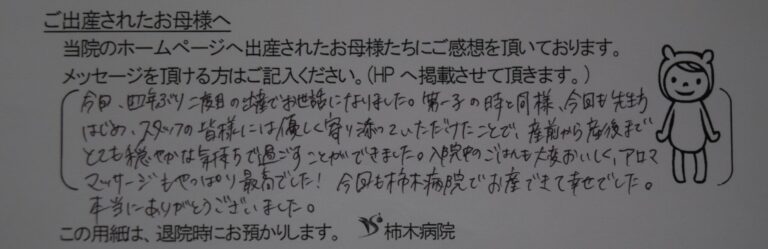 ご出産されたお母様へ
当院のホームページへ出産されたお母様たちにご感想を頂いております。
メッセージを頂ける方はご記入ください。(HPへ掲載させて頂きます。)
今回、四年ぶり二度目の出産でお世話になりました。第一子の時と同様、今回も先生方
はじめ、スタッフの皆様には優しく寄り添っていただけたことで、産前から産後まで
とても穏やかな気持ちで過ごすことができました。入院中のごはんも大変おいしく、アロマ
マッサージもやっぱり最高でした！ 今回も柿木病院でお産できて幸せでした。
本当にありがとうございました。
この用紙は、退院時にお預かりします。 柿木病院